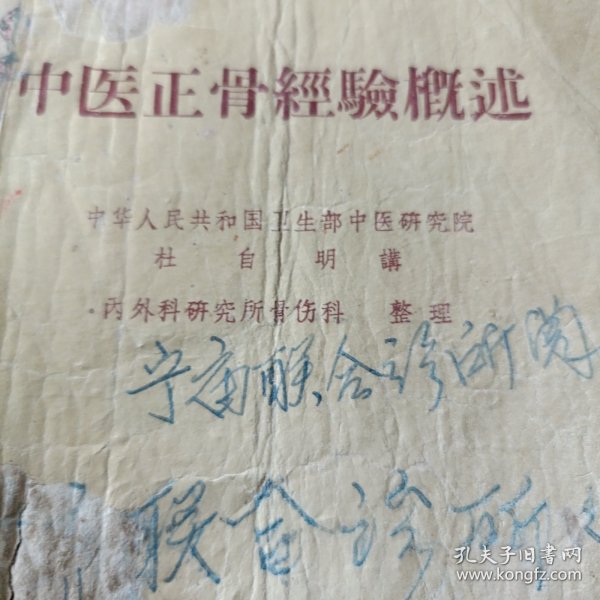 中医正骨經驗概述
中华人民共和国卫生部中医研究院
杜自明講
内外科研究所骨伤科 整理
联合诊所
联合诊所
孔夫子旧书网
www.kongfz.com